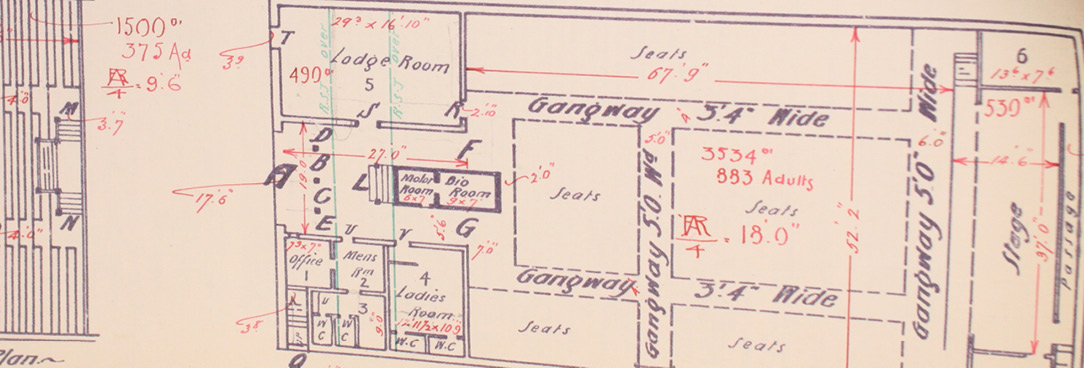 1500°'
375 Ad
AR/4 = 9'.6"
4'.0"
M
3'.7"
N
4'.0"
Plan
3'9
T
29'3 x 16'.10"
Lodge Room
490°'
5
R.S.J over
R.S.J over
S
R
2'.10"
D
B
C
E
A
17'.6"
27'.0"
19'.0"
L
F
Motor Room
6x7
Bio Room
9x7
2'.0"
5'.6"
G
7'.0"
U
V
7'3 x 7'
Office
1
Mens Rm
2
3
9'.0"
4
Ladies Room
12'.11½ x 10'.9
W C
W C
W.C
W.C
UP
3'.8"
Q
Seats
67'.9"
Gangway 3'.4" Wide
Seats
5'.0"
Gangway 5'.0 Wd
3534°'
883 Adults
Seats
AR/4 = 18'.0"
52'.2"
Gangway 3'.4" Wide
Seats
Seats
Gangway 5'.0" Wide
6'.0"
6
13'6 x 7'6
530°'
14'.6"
Stage
37'.0"
passage